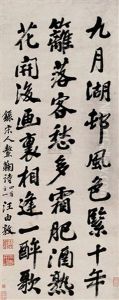 九月湖邨風色緊十年
籬落客愁多霜肥酒熟
花開後畫裏相逢一醉歌
錄宋人螯鞠詩 汪由敦